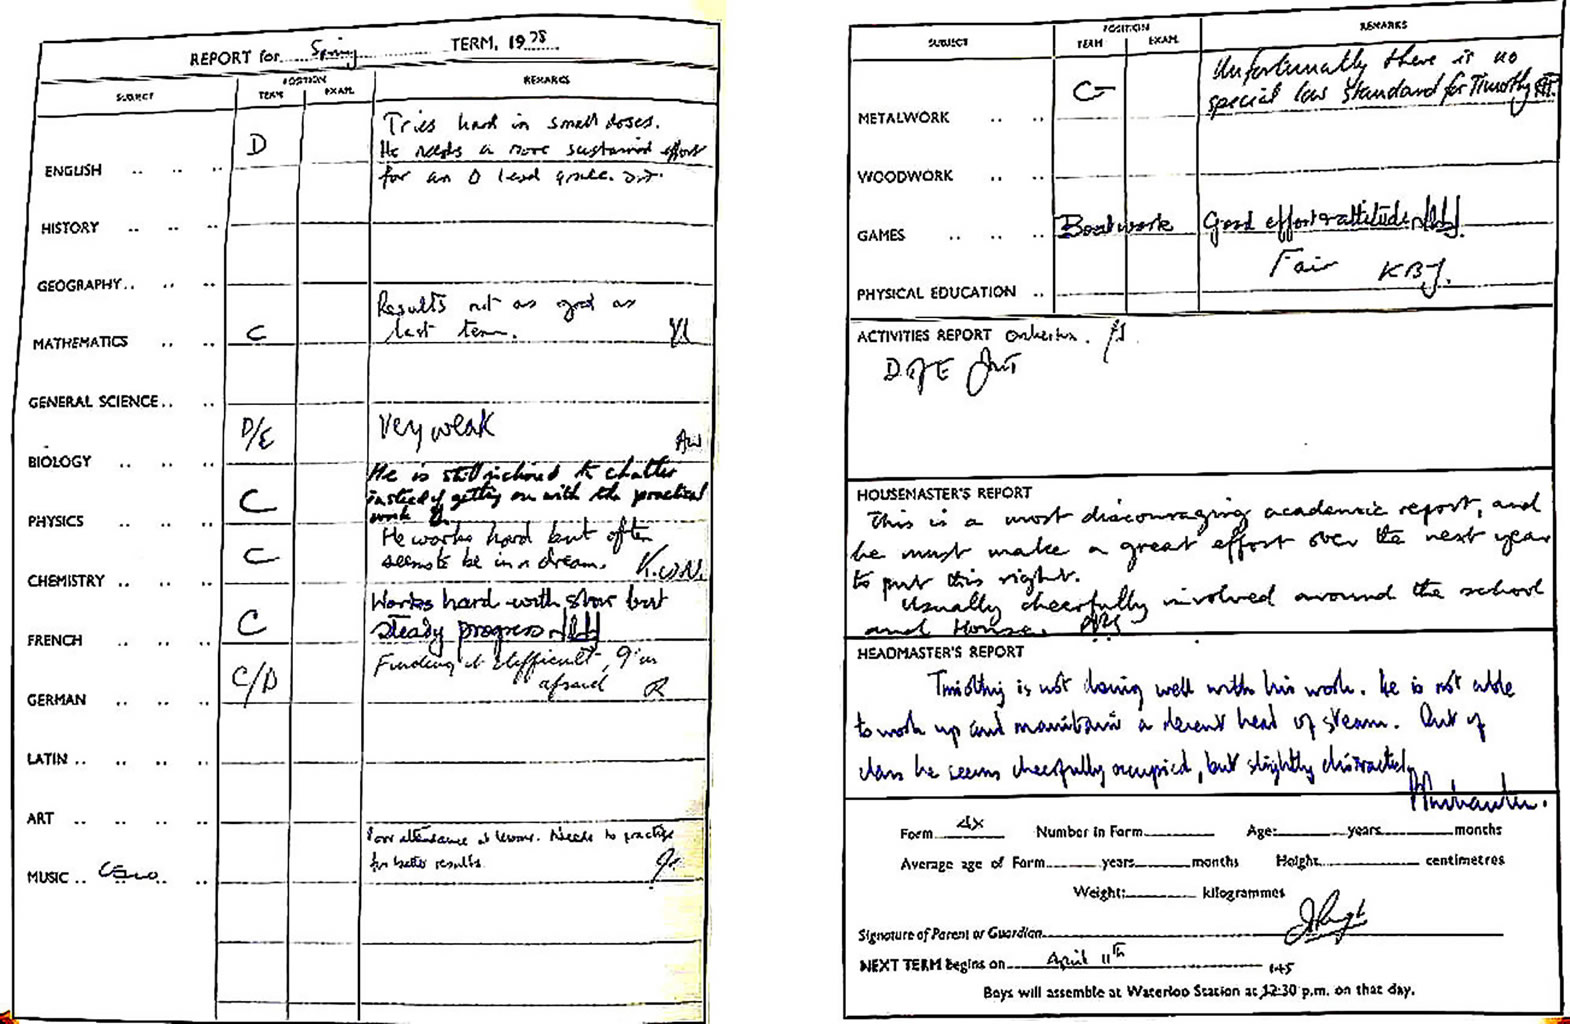 REPORT for Spring TERM, 1978
SUBJECT POSITION REMARKS
TERM EXAM.
ENGLISH D Tries hard in small doses.
He needs a more sustained effort
for an O level grade.
HISTORY
GEOGRAPHY
MATHEMATICS C Results not as good as
last term.
GENERAL SCIENCE
BIOLOGY D/E Very weak
PHYSICS C He is still inclined to chatter
instead of getting on with the practical
work
CHEMISTRY C He works hard but often
seems to be in a dream. K.W.N.
FRENCH C Works hard with slow but
steady progress
GERMAN C/D Finding it difficult, I'm
afraid R
LATIN
ART
MUSIC Poor attendance at lessons. Needs to practise
for better results.
SUBJECT POSITION REMARKS
TERM EXAM.
METALWORK C- Unfortunately there is no
special low standard for Timothy
WOODWORK
GAMES Boatwork Good effort & attitude
PHYSICAL EDUCATION Fair KBJ.
ACTIVITIES REPORT Orchestra.
D of E
HOUSEMASTER'S REPORT
This is a most discouraging academic report, and
he must make a great effort over the next year
to put this right.
Usually cheerfully involved around the school
and House.
HEADMASTER'S REPORT
Timothy is not doing well with his work. He is not able
to work up and maintain a decent head of steam. Out of
class he seems cheerfully occupied, but slightly distractedly
Form 4X Number in Form Age: years months
Average age of Form years months Height centimetres
Weight: kilogrammes
Signature of Parent or Guardian
NEXT TERM Begins on April 11th
1.45
Boys will assemble at Waterloo Station at 12:30 p.m. on that day.